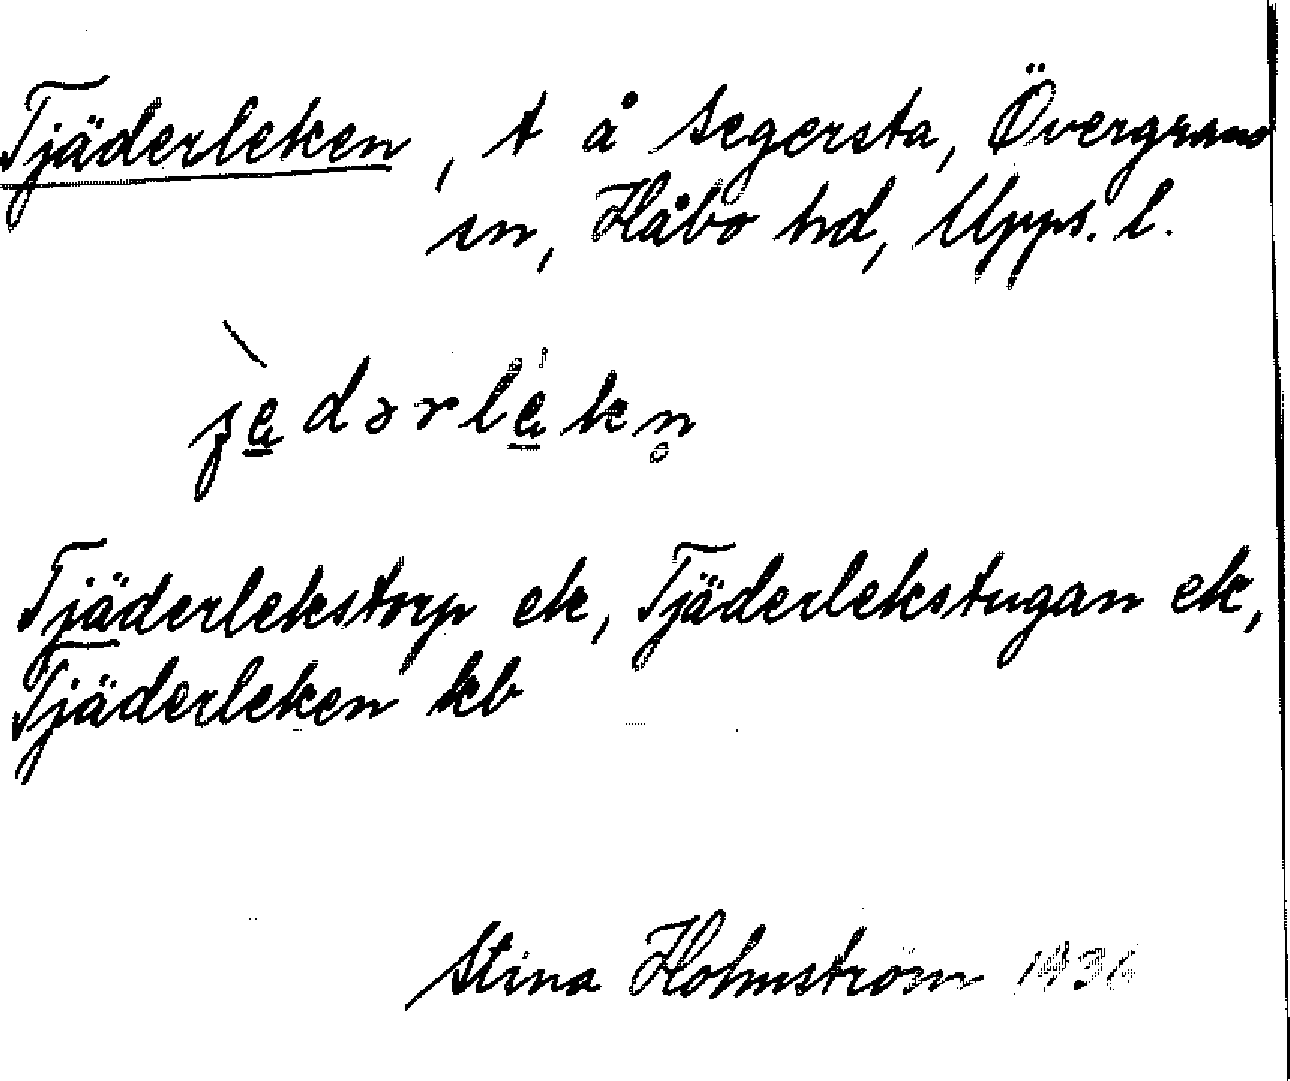 Tjäderleken, t å Segersta, Övergrans
sn, Håbo hd, Upps. l.
Tjäderlekstorp ek, Tjäderlekstugan ek,
Tjäderleken kb
Stina Holmström 1936